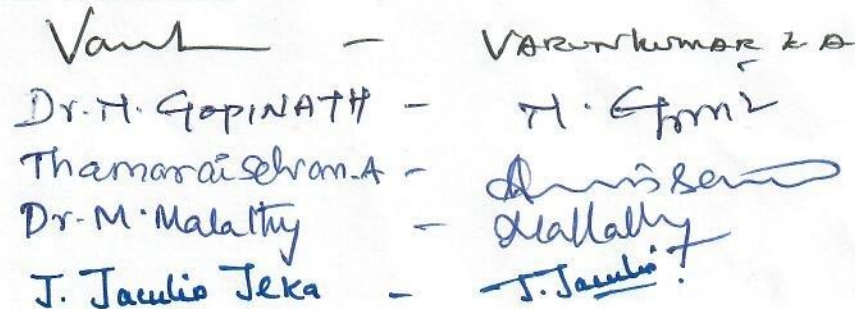 Varun - VARUNKUMAR K A
Dr. M. GOPINATH - M. Gopinath
Thamaraiselvan.A -
Dr. M. Malathy - Mallathy
J. Jaculio Jeka - J. Jaculio